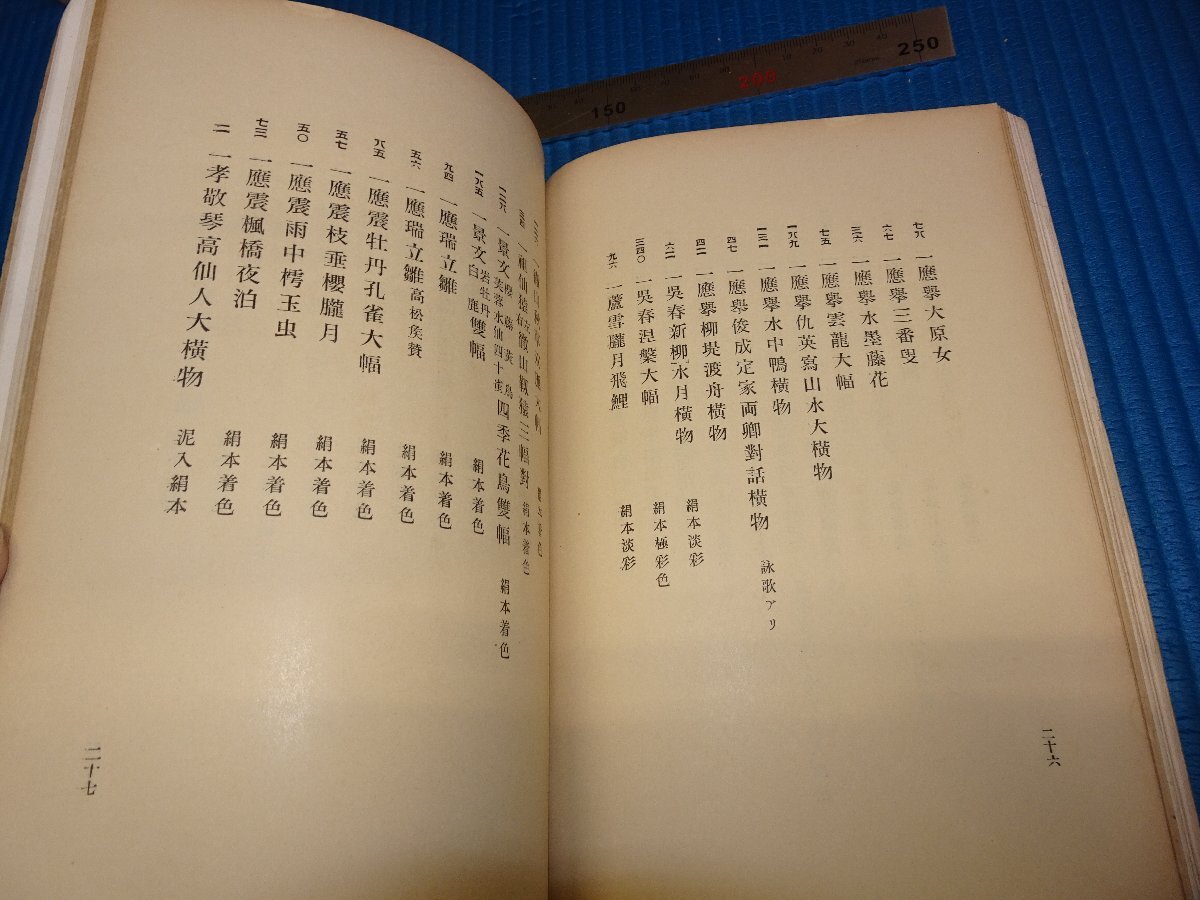 七八 一應擧大原女
六七 一應擧三番叟
三六 一應擧水墨藤花
七五 一應擧雲龍大幅
一八九 一應擧仇英寫山水大橫物
一三一 一應擧水中鴨橫物
四七 一應擧俊成定家両卿對話橫物 詠歌アリ
四一 一應擧柳堤渡舟橫物 絹本淡彩
六二 一吳春新柳水月橫物 絹本極彩色
三四〇 一吳春涅槃大幅
九六 一蘆雪朧月飛鯉 絹本淡彩
二十六
三幅對 絹本着色
一景文 四季花鳥雙幅 絹本着色
一八五 一景文 岩牡丹 白鹿 雙幅 絹本着色
九四 一應瑞立雛 絹本着色
五六 一應瑞立雛高松矦賛 絹本着色
八五 一應震牡丹孔雀大幅 絹本着色
五七 一應震枝垂櫻朧月 絹本着色
五〇 一應震雨中樗玉虫 絹本着色
七三 一應震楓橋夜泊 絹本着色
二 一孝敬琴高仙人大橫物 泥入絹本
二十七
150
200
250